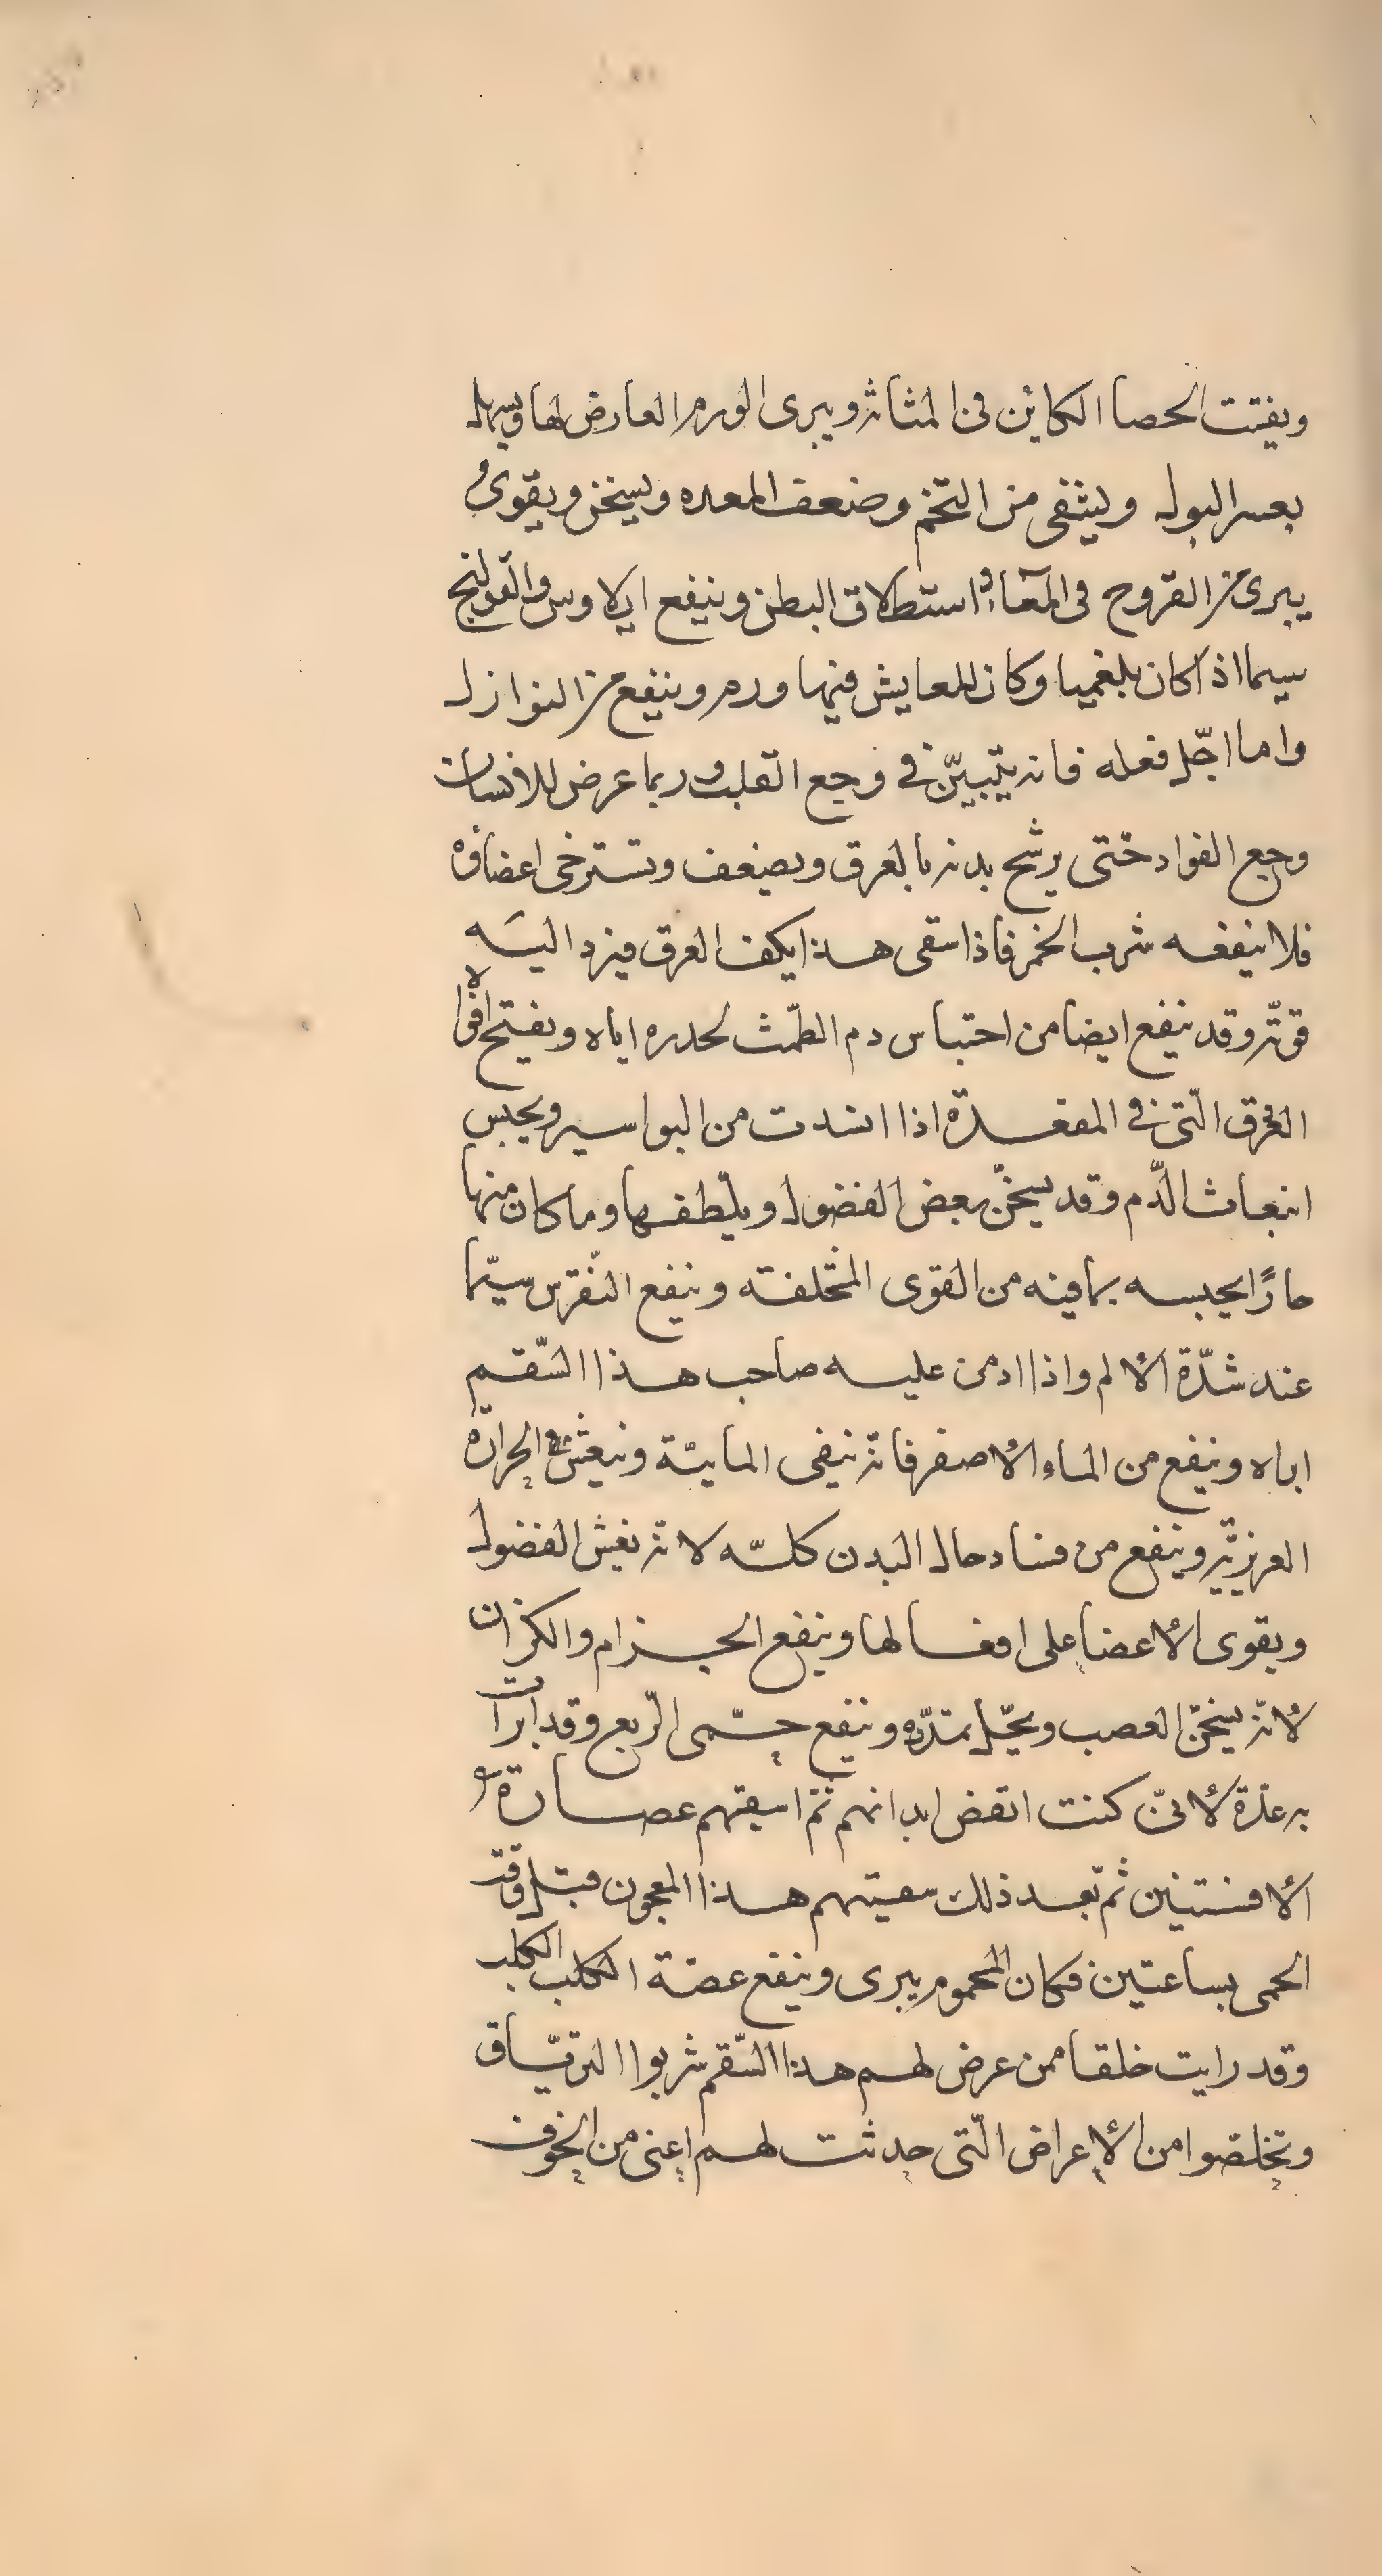 ويفتت الحصا الكاين فى المثانه ويبرى الورم العارض لها ويسهل
بعسر البول ويشفى من التخم وضعف المعده ويسخن ويقوى و
يبرئ من القروح فى المعآء واستطلاق البطن وينفع ايلاوس والقولنج
سيما اذا كان بلغميا وكان للمعايش فيها ورم وينفع من النوازل
واما اجّل فعله فانه يتبيّن فى وجع القلب وربما عرض للانسان
وجع الفواد حتى يرشح بدنه بالعرق ويضعف وتسترخى اعضاؤه
فلا ينفعه شرب الخمر فاذا سقى هذا يكف العرق فيزد اليه
قوته وقد ينفع ايضا من احتباس دم الطمث لحدره اياه ويفتح افواه
العرق التى فى المقعدة اذا انسدت من البواسير ويحبس
انبعاث الدّم وقد يسخّن بعض الفضول ويلطفها وما كان منها
حارًا يحبسه بما فيه من القوى المختلفة وينفع النّقرس سيّما
عند شدّة الألم واذا ادمن عليه صاحب هذا السّقم
اباه وينفع من الماء الأصفر فانه ينفى المايّة وينعش الحرارة
العزيزيّه وينفع من فساد حال البدن كلّه لانّه يغش الفضول
ويقوى الأعضا على افعالها وينفع الجزام والكزان
لأنّه يسخّن العصب ويحّل تمدّده وينفع حمّى الرّبع وقد ابرات
به عدّة لأنّى كنت انقض ابدانهم ثمّ اسقيهم عصارة
الأفسنتين ثم بعد ذلك سقيتهم هذا المعجون قبل وقت
الحمى بساعتين فكان المحموم يبرى وينفع عضّة الكلب الكلب
وقد رايت خلقا ممن عرض لهم هذا السّقم شربوا الترياق
وتخلصوا من الأعراض الّتى حدثت لهم اعنى من الخوف